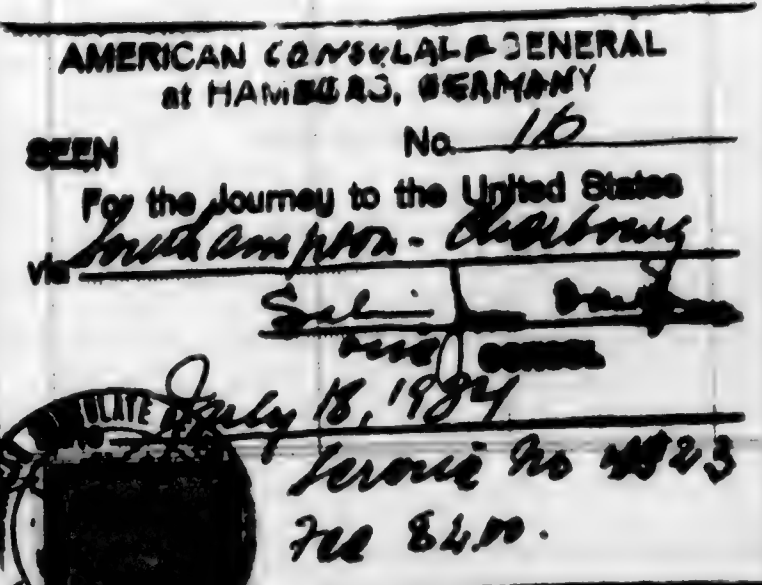 AMERICAN CONSULATE GENERAL
at HAMBURG, GERMANY
SEEN No. 116
For the Journey to the United States
via Southampton - Cherbourg
CONSUL
July 18, 1924
Service No 23
Fee $2.00.